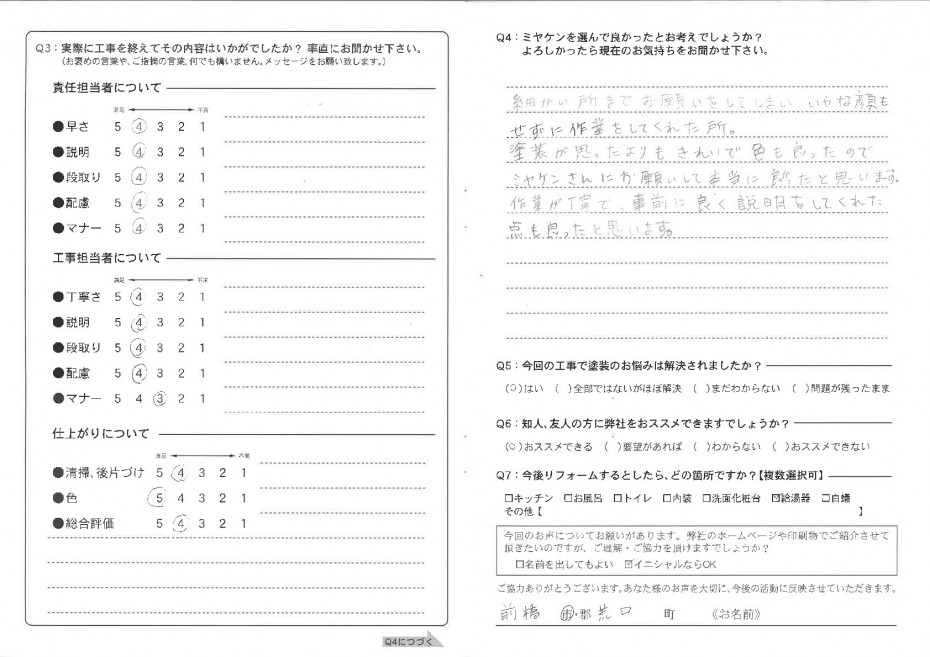 Q3：実際に工事を終えてその内容はいかがでしたか？ 率直にお聞かせ下さい。
（お褒めの言葉や、ご指摘の言葉、何でも構いません。メッセージをお願い致します。）
責任担当者について
満足 不満
●早さ 5 4 3 2 1
●説明 5 4 3 2 1
●段取り 5 4 3 2 1
●配慮 5 4 3 2 1
●マナー 5 4 3 2 1
工事担当者について
満足 不満
●丁寧さ 5 4 3 2 1
●説明 5 4 3 2 1
●段取り 5 4 3 2 1
●配慮 5 4 3 2 1
●マナー 5 4 3 2 1
仕上がりについて
満足 不満
●清掃、後片づけ 5 4 3 2 1
●色 5 4 3 2 1
●総合評価 5 4 3 2 1
Q4につづく
Q4：ミヤケンを選んで良かったとお考えでしょうか？
よろしかったら現在のお気持ちをお聞かせ下さい。
細かい所までお願いをしてしまい、いやな顔も
せずに作業をしてくれた所。
塗装が思ったよりもきれいで色も良ったので
ミヤケンさんにお願いして本当に良ったと思います。
作業が丁寧で、事前に良く説明をしてくれた
点も良ったと思います。
Q5：今回の工事で塗装のお悩みは解決されましたか？
（○）はい （ ）全部ではないがほぼ解決 （ ）まだわからない （ ）問題が残ったまま
Q6：知人、友人の方に弊社をおススメできますでしょうか？
（○）おススメできる （ ）要望があれば （ ）わからない （ ）おススメできない
Q7：今後リフォームするとしたら、どの箇所ですか？【複数選択可】
□キッチン □お風呂 □トイレ □内装 □洗面化粧台 ☑給湯器 □白蟻
その他【 】
今回のお声についてお願いがあります。弊社のホームページや印刷物でご紹介させて
頂きたいのですが、ご理解・ご協力を頂けますでしょうか？
□名前を出してもよい ☑イニシャルならOK
ご協力ありがとうございます。あなた様のお声を大切に、今後の活動に反映させていただきます。
前橋 市・郡 荒口 町 《お名前》